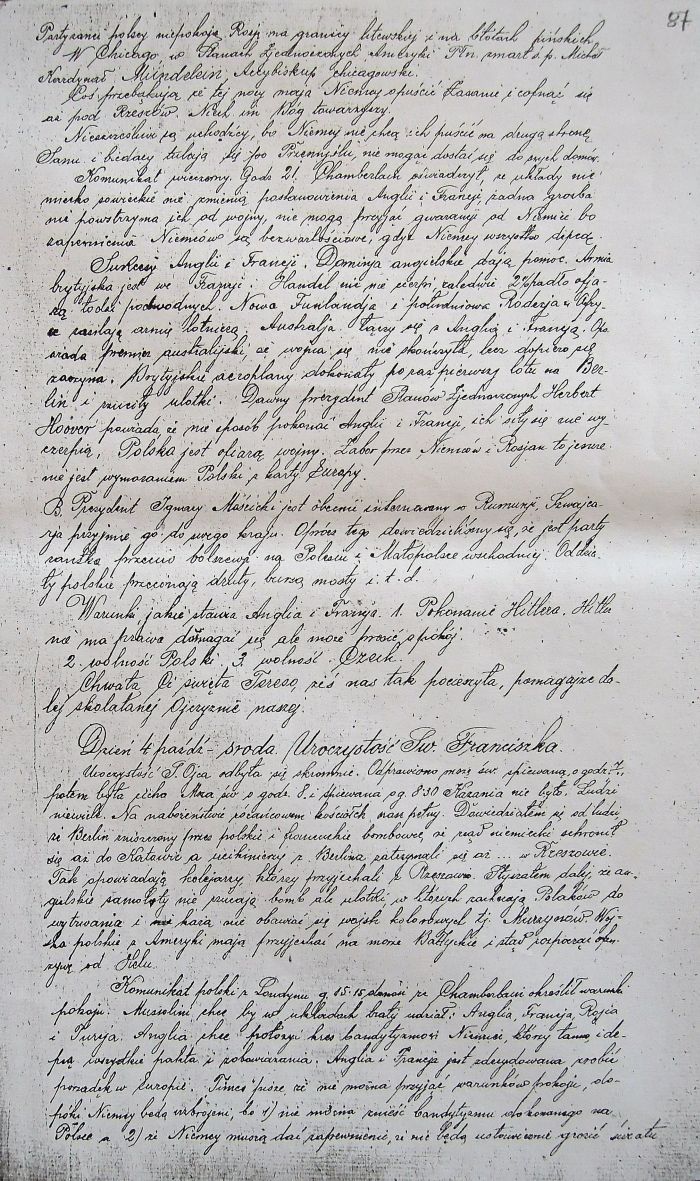 87
Partyzanci polscy niepokoją Rosję na granicy litewskiej i na błotach pińskich.
W Chicago w Stanach Zjednoczonych Ameryki Płn. zmarł ś.p. Michał
Kardynał Mündelein, Arcybiskup chicagowski.
Coś przebąkują że tej nocy mają Niemcy opuścić Zasanie i cofnąć się
aż pod Rzeszów. Niech im Bóg towarzyszy.
Nieszczęśliwi są uchodźcy, bo Niemcy nie chcą ich puścić na drugą stronę
Sanu i biedacy tułają się po Przemyślu, nie mogąc dostać się do swych domów.
Komunikat wieczorny. Godz 21. Chamberlain oświadczył, że układy nie
miecko sowieckie nie zmienią postanowienia Anglii i Francji, żadna groźba
nie powstrzyma ich od wojny, nie mogą przyjąć gwarancji od Niemiec bo
zapewnienia Niemców są bezwartościowe, gdyż Niemcy wszystko depcą.
Sukcesy Anglii i Francji. Dominja angielskie dają pomoc. Armia
brytyjska jest we Francji. Handel nic nie cierpi, zaledwie 2% padło ofia-
rą łodzi podwodnych. Nowa Funlandja i południowa Rodezja w Afry-
ce zasilają armię lotniczą. Australja łączy się z Anglią i Francją. Opo
wiada premier australijski, że wojna się nie skończyła, lecz dopiero się
zaczyna. Brytyjskie aeroplany dokonały po raz pierwszy lotu na Ber-
lin i rzuciły ulotki. Dawny prezydent Stanów Zjednoczonych Herbert
Hoover powiada że nie sposób pokonać Anglii i Francji, ich siły się nie wy-
czerpią, Polska jest ofiarą wojny. Zabór przez Niemców i Rosjan to jeszcze
nie jest wymazaniem Polski z karty Europy.
B. Prezydent Ignacy Mościcki jest obecnie internowany w Rumunji, Szwajca-
rja przyjmie go do swego kraju. Oprócz tego dowiedzieliśmy się, że jest party
zantka przeciw bolszewji na Polesiu i Małopolsce wschodniej. Oddzia-
ły polskie przecinają druty, burzą mosty i. t. d.
Warunki jakie stawia Anglia i Francja. 1. Pokonanie Hitlera. Hitler
nie ma prawa domagać się ale może prosić o pokój.
2. wolność Polski. 3. wolność Czech.
Chwała Ci święta Tereso, żeś nas tak pocieszyła, pomagajże da-
lej skołatanej Ojczyźnie naszej.
Dzień 4 paźdź – środa. Uroczystość Św. Franciszka.
Uroczystość Ś. Ojca odbyła się skromnie. Odprawiono mszę św. śpiewaną o godz. 7.,
potem była cicha Msza św. o godz. 8. i śpiewana o g. 8 30 Kazania nie było. Ludzi
niewiele. Na nabożeństwie różańcowem kościół nasz pełny. Dowiedziałem się od ludzi,
że Berlin zniszczony przez polskie i francuskie bombowce, że rząd niemiecki schronił
się aż do Katowic a uciekinierzy z Berlina zatrzymali się aż ... w Rzeszowie.
Tak opowiadają kolejarze, którzy przyjechali z Rzeszowa. Słyszałem dalej, że an-
gielskie samoloty nie rzucają bomb ale ulotki, w których zachęcają Polaków do
wytrwania i każą nie obawiać się wojsk kolorowych tj. Murzynów. Woj-
ska polskie z Ameryki mają przyjechać na morze Bałtyckie i stąd rozpocząć ofen-
zywę od Helu.
Komunikat polski z Londynu g. 15.15 donosi że Chamberlain określił warunki
pokoju. Musolini chce by w układach brały udział: Anglia, Francja, Rosja
i Turcja. Anglia chce położyć kres bandytyzmowi Niemiec, którzy łamią i de-
pcą wszystkie pakta i zobowiązania. Anglia i Francja jest zdecydowana zrobić
porządek w Europie. Times pisze że nie można przyjąć warunków pokoju, do-
póki Niemcy będą uzbrojeni, bo 1) nie można znieść bandytyzmu dokonanego na
Polsce a 2) że Niemcy muszą dać zapewnienie, że nie będą ustawicznie grozić światu